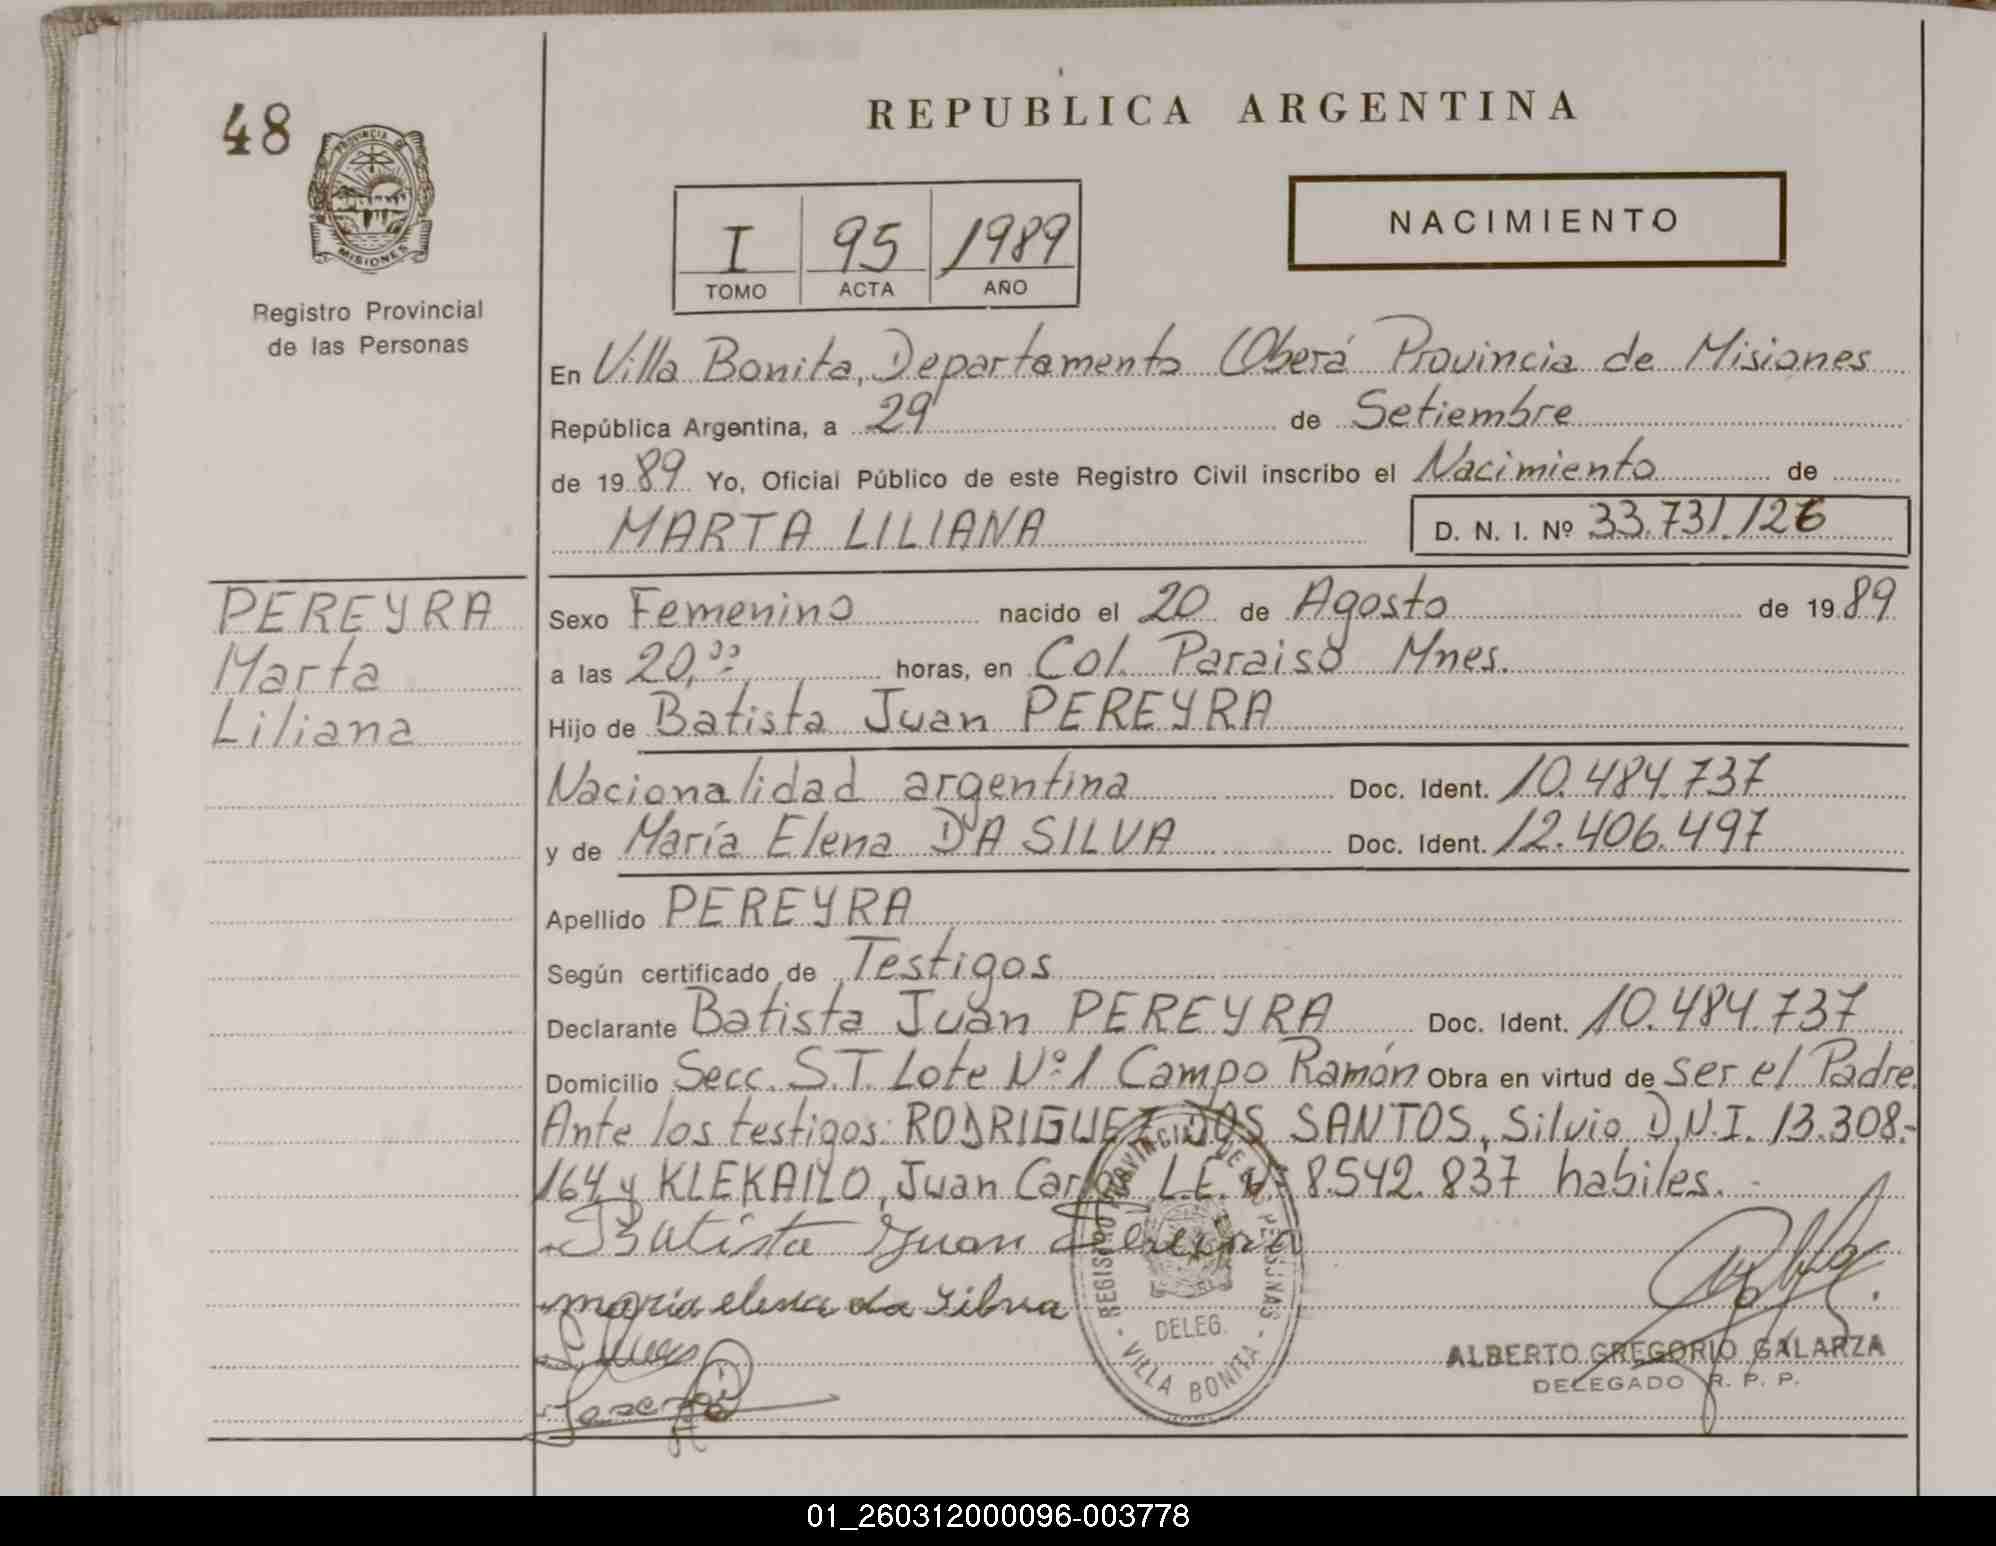 48
PROVINCIA DE
MISIONES
Registro Provincial
de las Personas
REPUBLICA ARGENTINA
I 95 1989
TOMO ACTA AÑO
NACIMIENTO
En Villa Bonita, Departamento Oberá Provincia de Misiones
República Argentina, a 29 de Setiembre
de 1989 Yo, Oficial Público de este Registro Civil inscribo el Nacimiento de
MARTA LILIANA D. N. I. Nº 33.731.126
PEREYRA
Marta
Liliana
Sexo Femenino nacido el 20 de Agosto de 1989
a las 20,⁰⁰ horas, en Col. Paraiso Mnes.
Hijo de Batista Juan PEREYRA
Nacionalidad argentina Doc. Ident. 10.484.737
y de María Elena DA SILVA Doc. Ident. 12.406.497
Apellido PEREYRA
Según certificado de Testigos
Declarante Batista Juan PEREYRA Doc. Ident. 10.484.737
Domicilio Secc. S.T. Lote Nº 1 Campo Ramón Obra en virtud de ser el Padre.
Ante los testigos: RODRIGUEZ DOS SANTOS, Silvio D.N.I. 13.308.-
164 y KLEKAILO, Juan Carlos L.E. Nº 8.542.837 habiles.-
Batista Juan Pereyra
maria elena da silva
REGISTRO PROVINCIAL DE LAS PERSONAS
DELEG.
VILLA BONITA
ALBERTO GREGORIO GALARZA
DELEGADO R. P. P.
01_260312000096-003778